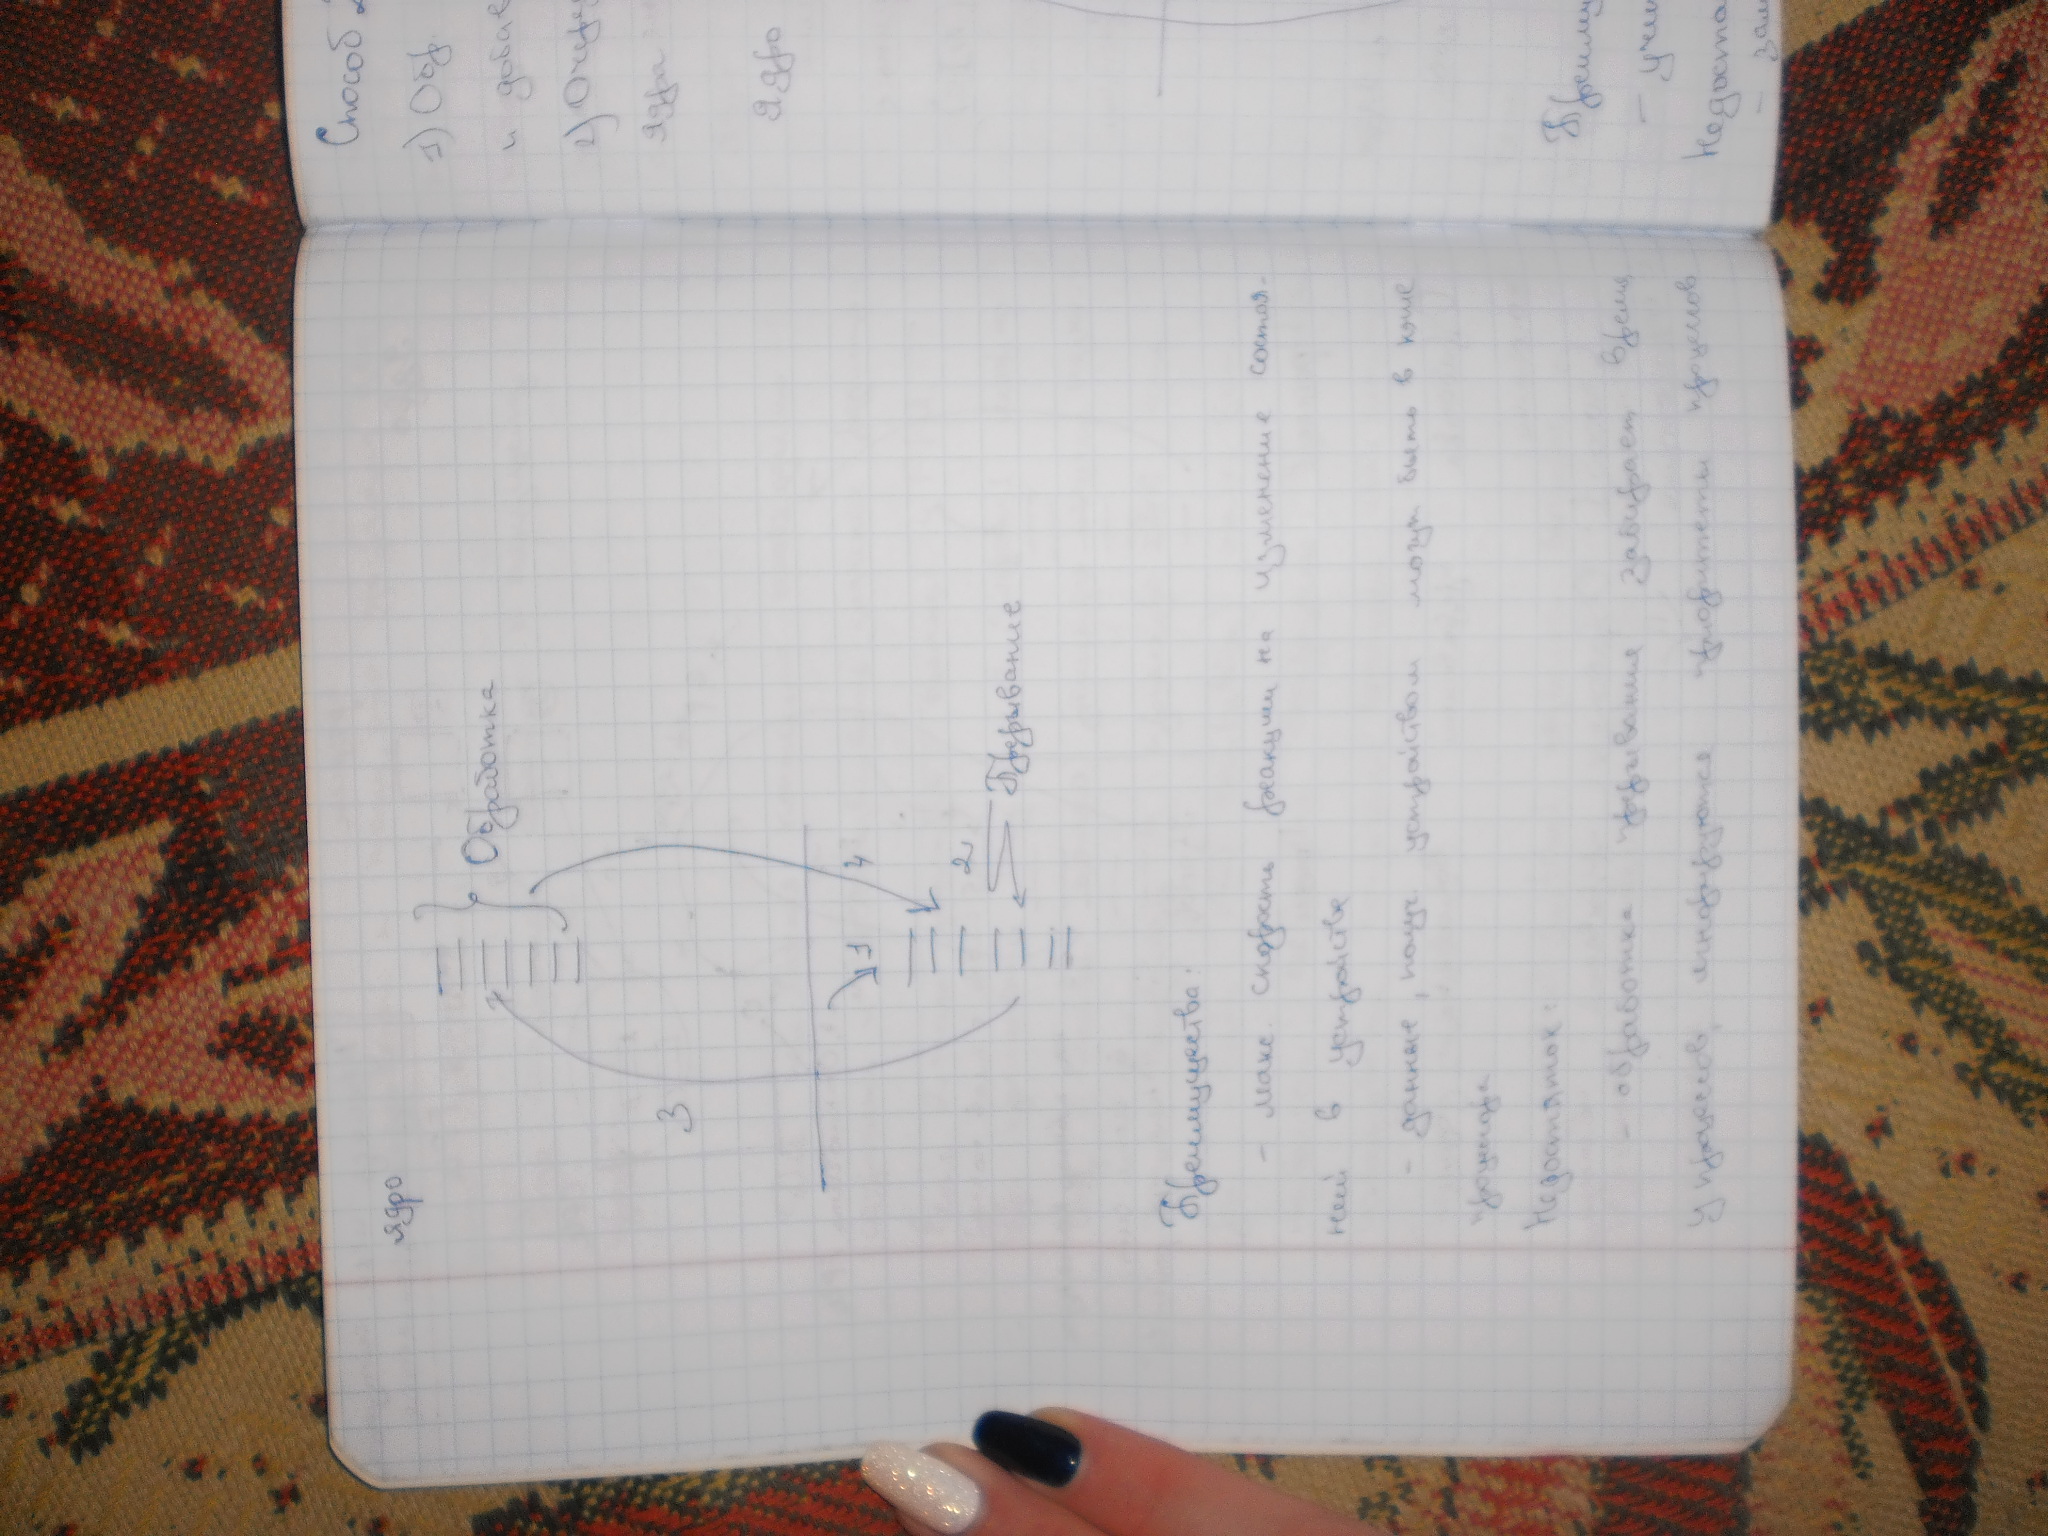 ядро
Обработка
3
1 4
2
Прерывание
Преимущества:
- макс скорость реакции на изменение состоя-
ний в устройстве
- данные, получ. устройством могут быть в коше
процессора
Недостаток:
- обработка прерывания забирает время
у процессов, игнорируются приоритеты процессов
Способ 2
1) Обр.
и добавле
2) Очеред
ядра
Ядро
Преиму
- учи
Недоста
- зам